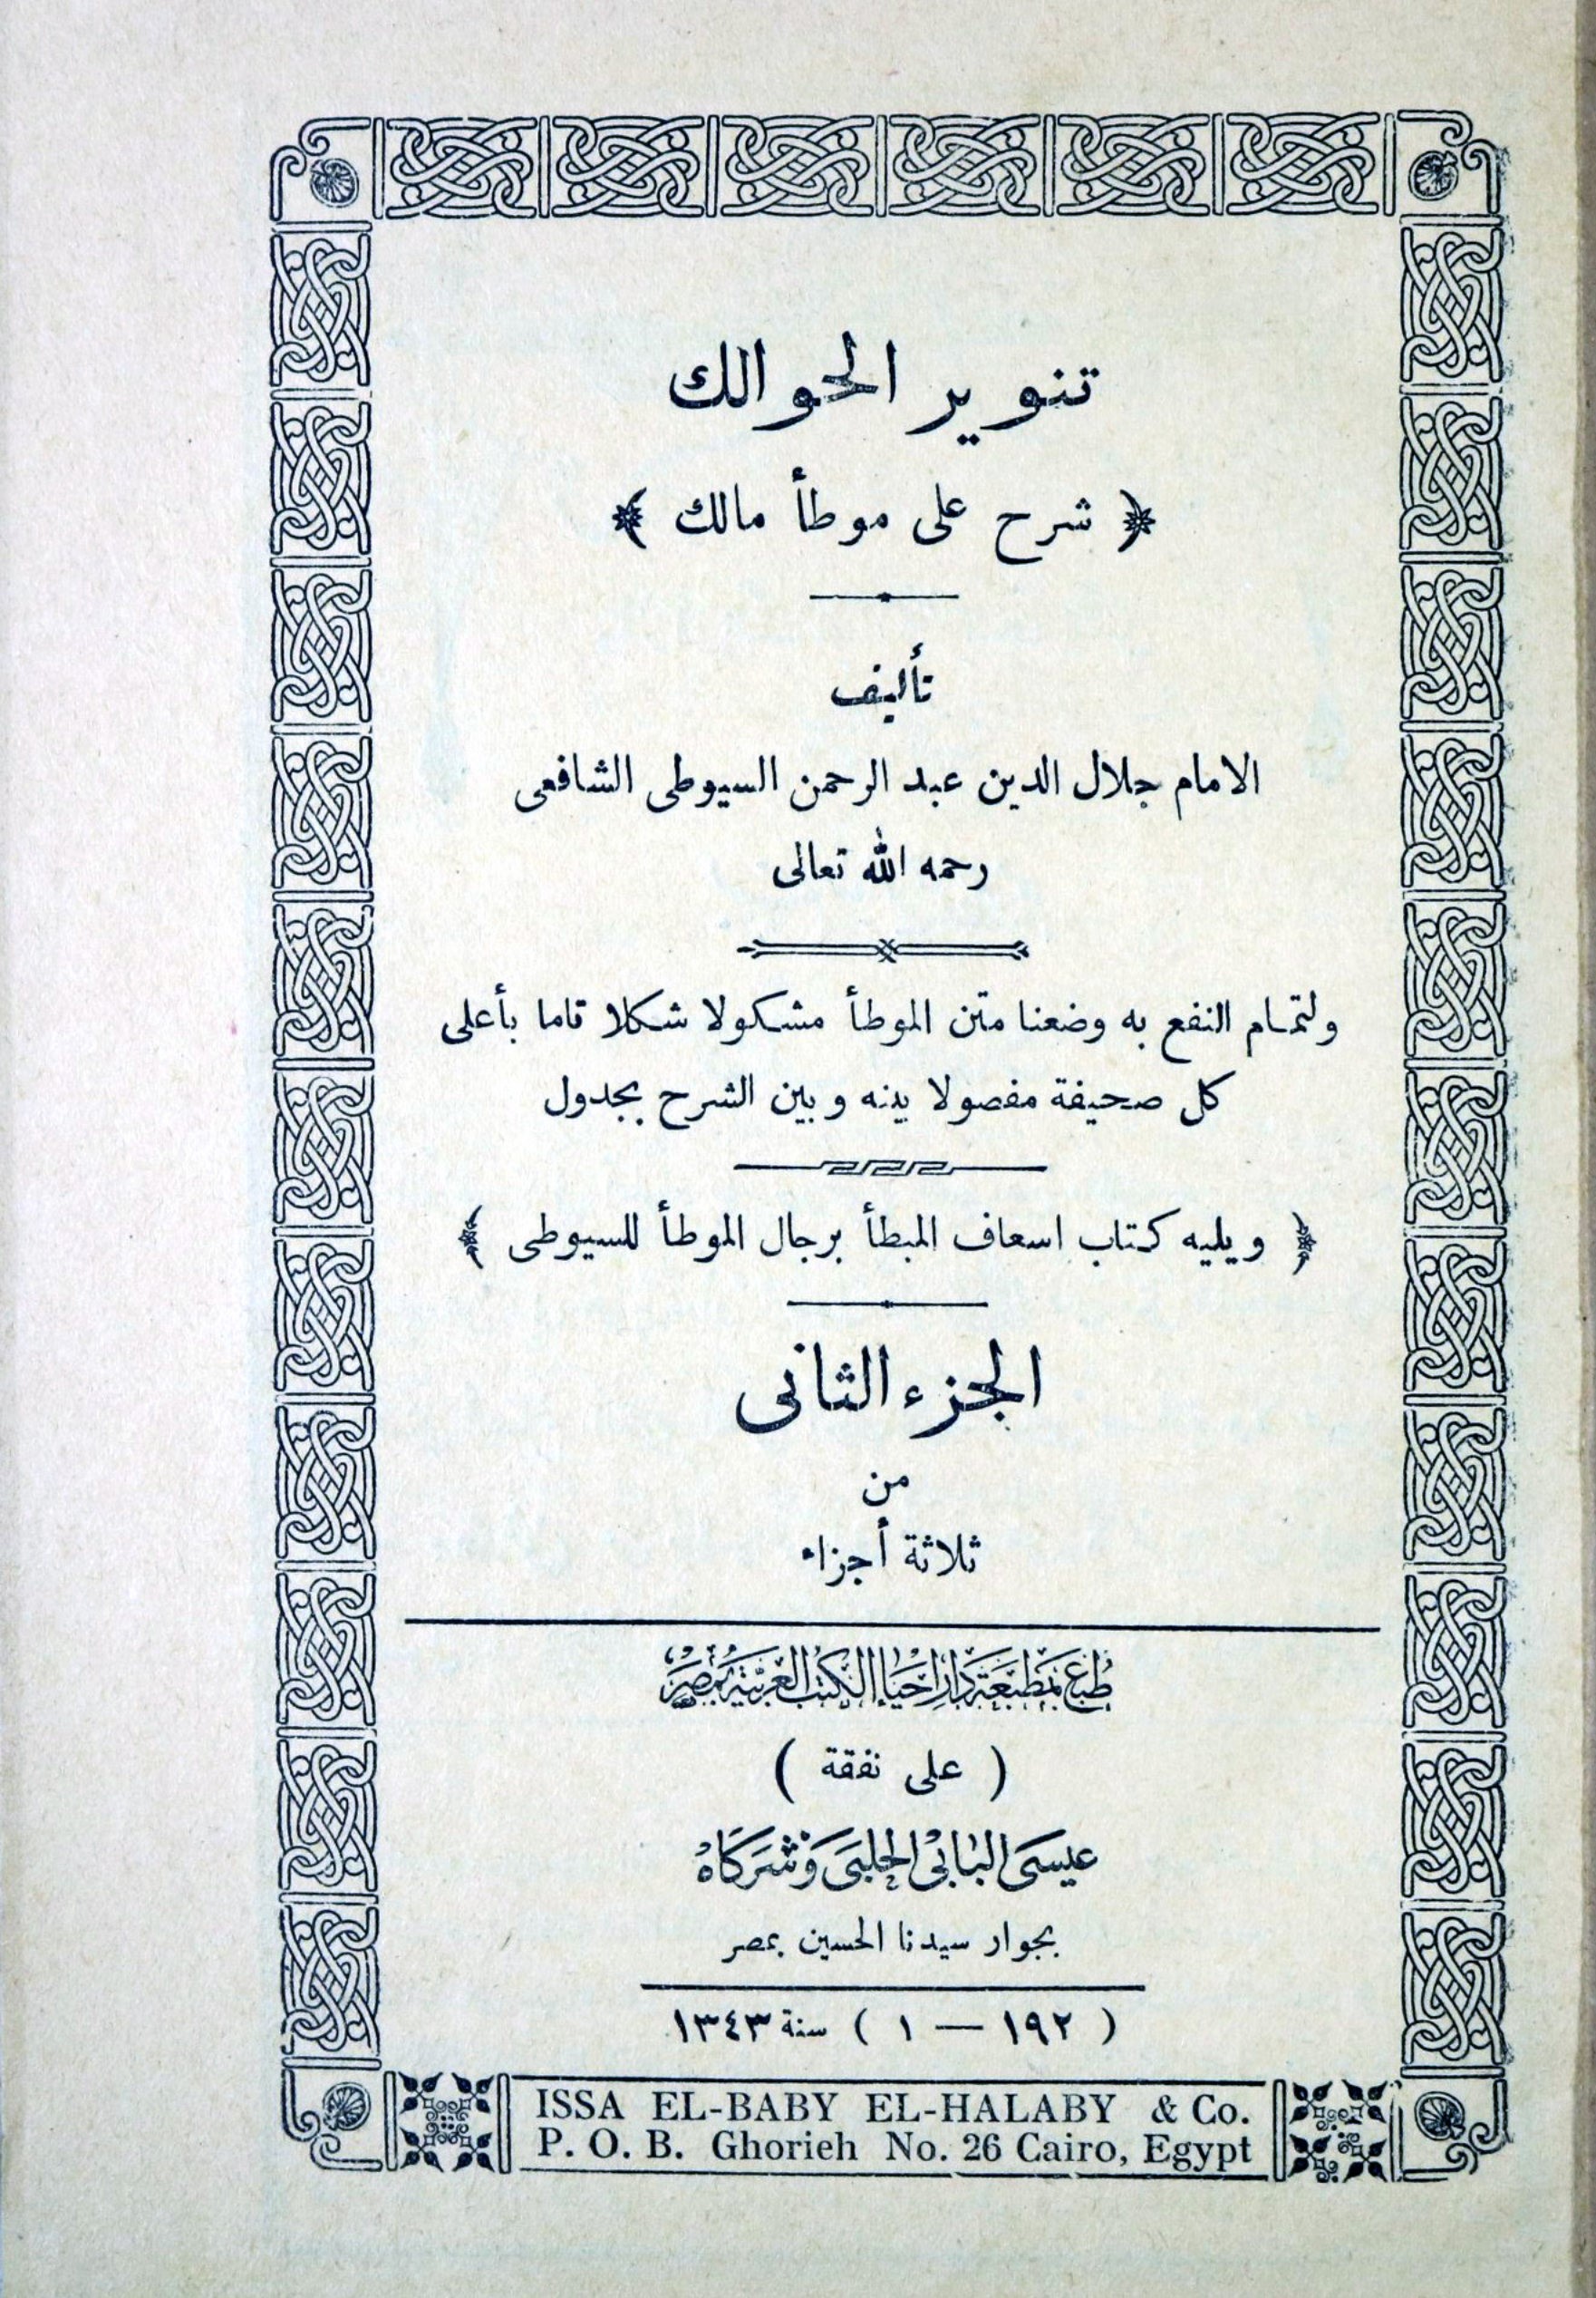 تنوير الحوالك
﴿ شرح على موطأ مالك ﴾
تأليف
الامام جلال الدين عبد الرحمن السيوطى الشافعى
رحمه الله تعالى
ولتمام النفع به وضعنا متن الموطأ مشكولا شكلا تاما بأعلى
كل صحيفة مفصولا بينه وبين الشرح بجدول
﴿ ويليه كتاب اسعاف المبطأ برجال الموطأ للسيوطى ﴾
الجزء الثانى
من
ثلاثة أجزاء
طُبع بمطبعة دار احياء الكتب العربية بمصر
( على نفقة )
عيسى البابى الحلبى وشركاه
بجوار سيدنا الحسين بمصر
( ١٩٢ — ١ ) سنة ١٣٤٣
ISSA EL-BABY EL-HALABY & Co.
P. O. B. Ghorieh No. 26 Cairo, Egypt